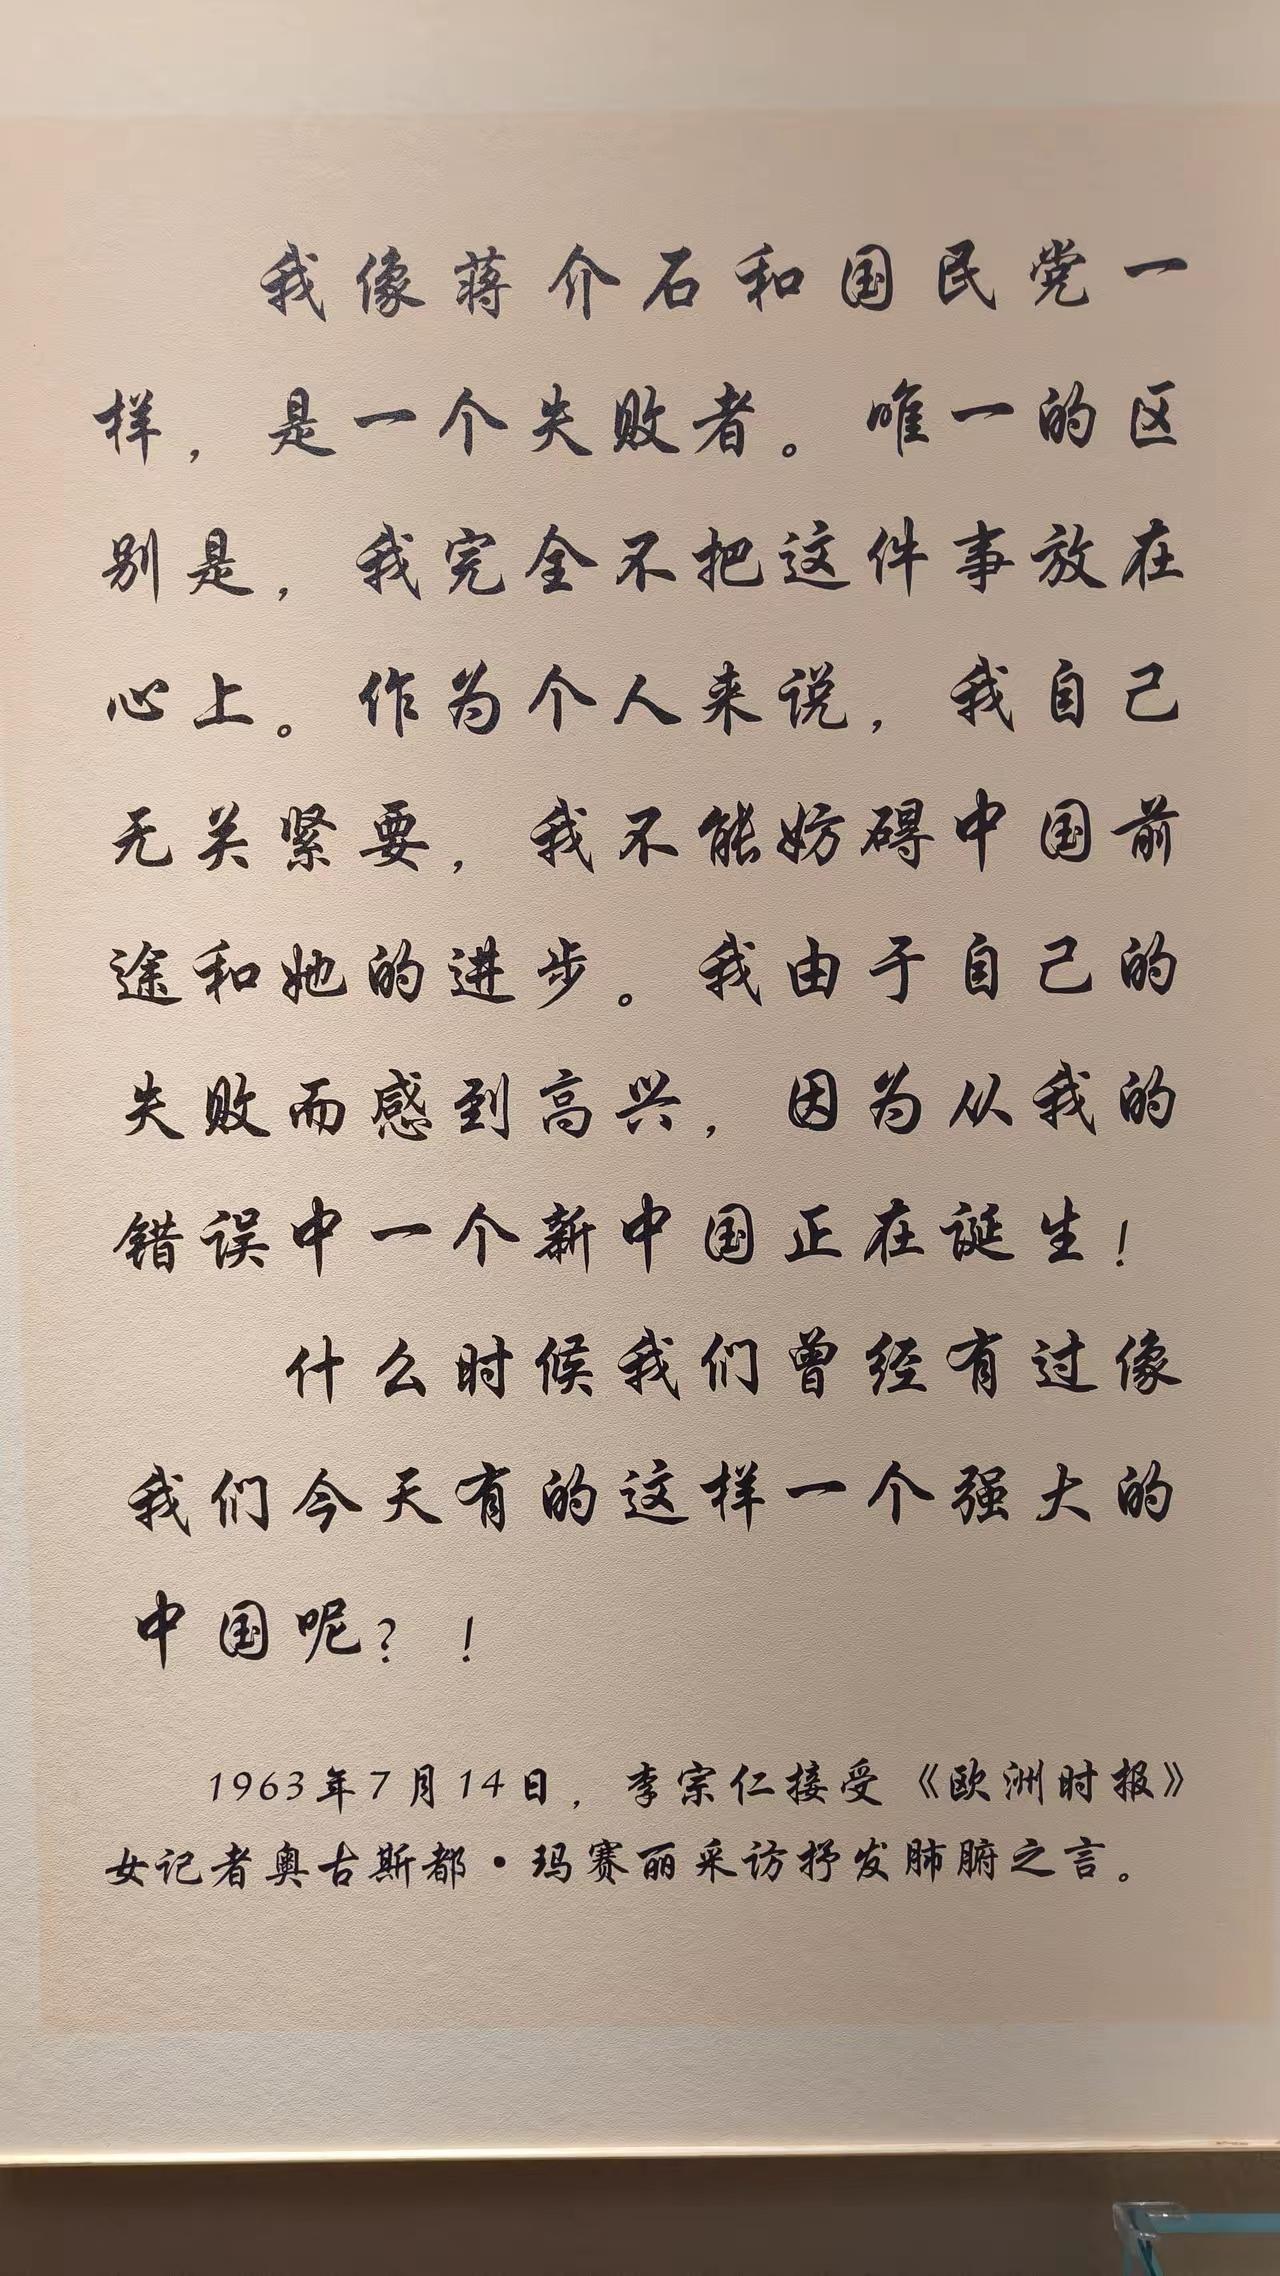 我像蒋介石和国民党一
样，是一个失败者。唯一的区
别是，我完全不把这件事放在
心上。作为个人来说，我自己
无关紧要，我不能妨碍中国前
途和她的进步。我由于自己的
失败而感到高兴，因为从我的
错误中一个新中国正在诞生！
什么时候我们曾经有过像
我们今天有的这样一个强大的
中国呢？！
1963年7月14日，李宗仁接受《欧洲时报》
女记者奥古斯都·玛赛丽采访抒发肺腑之言。